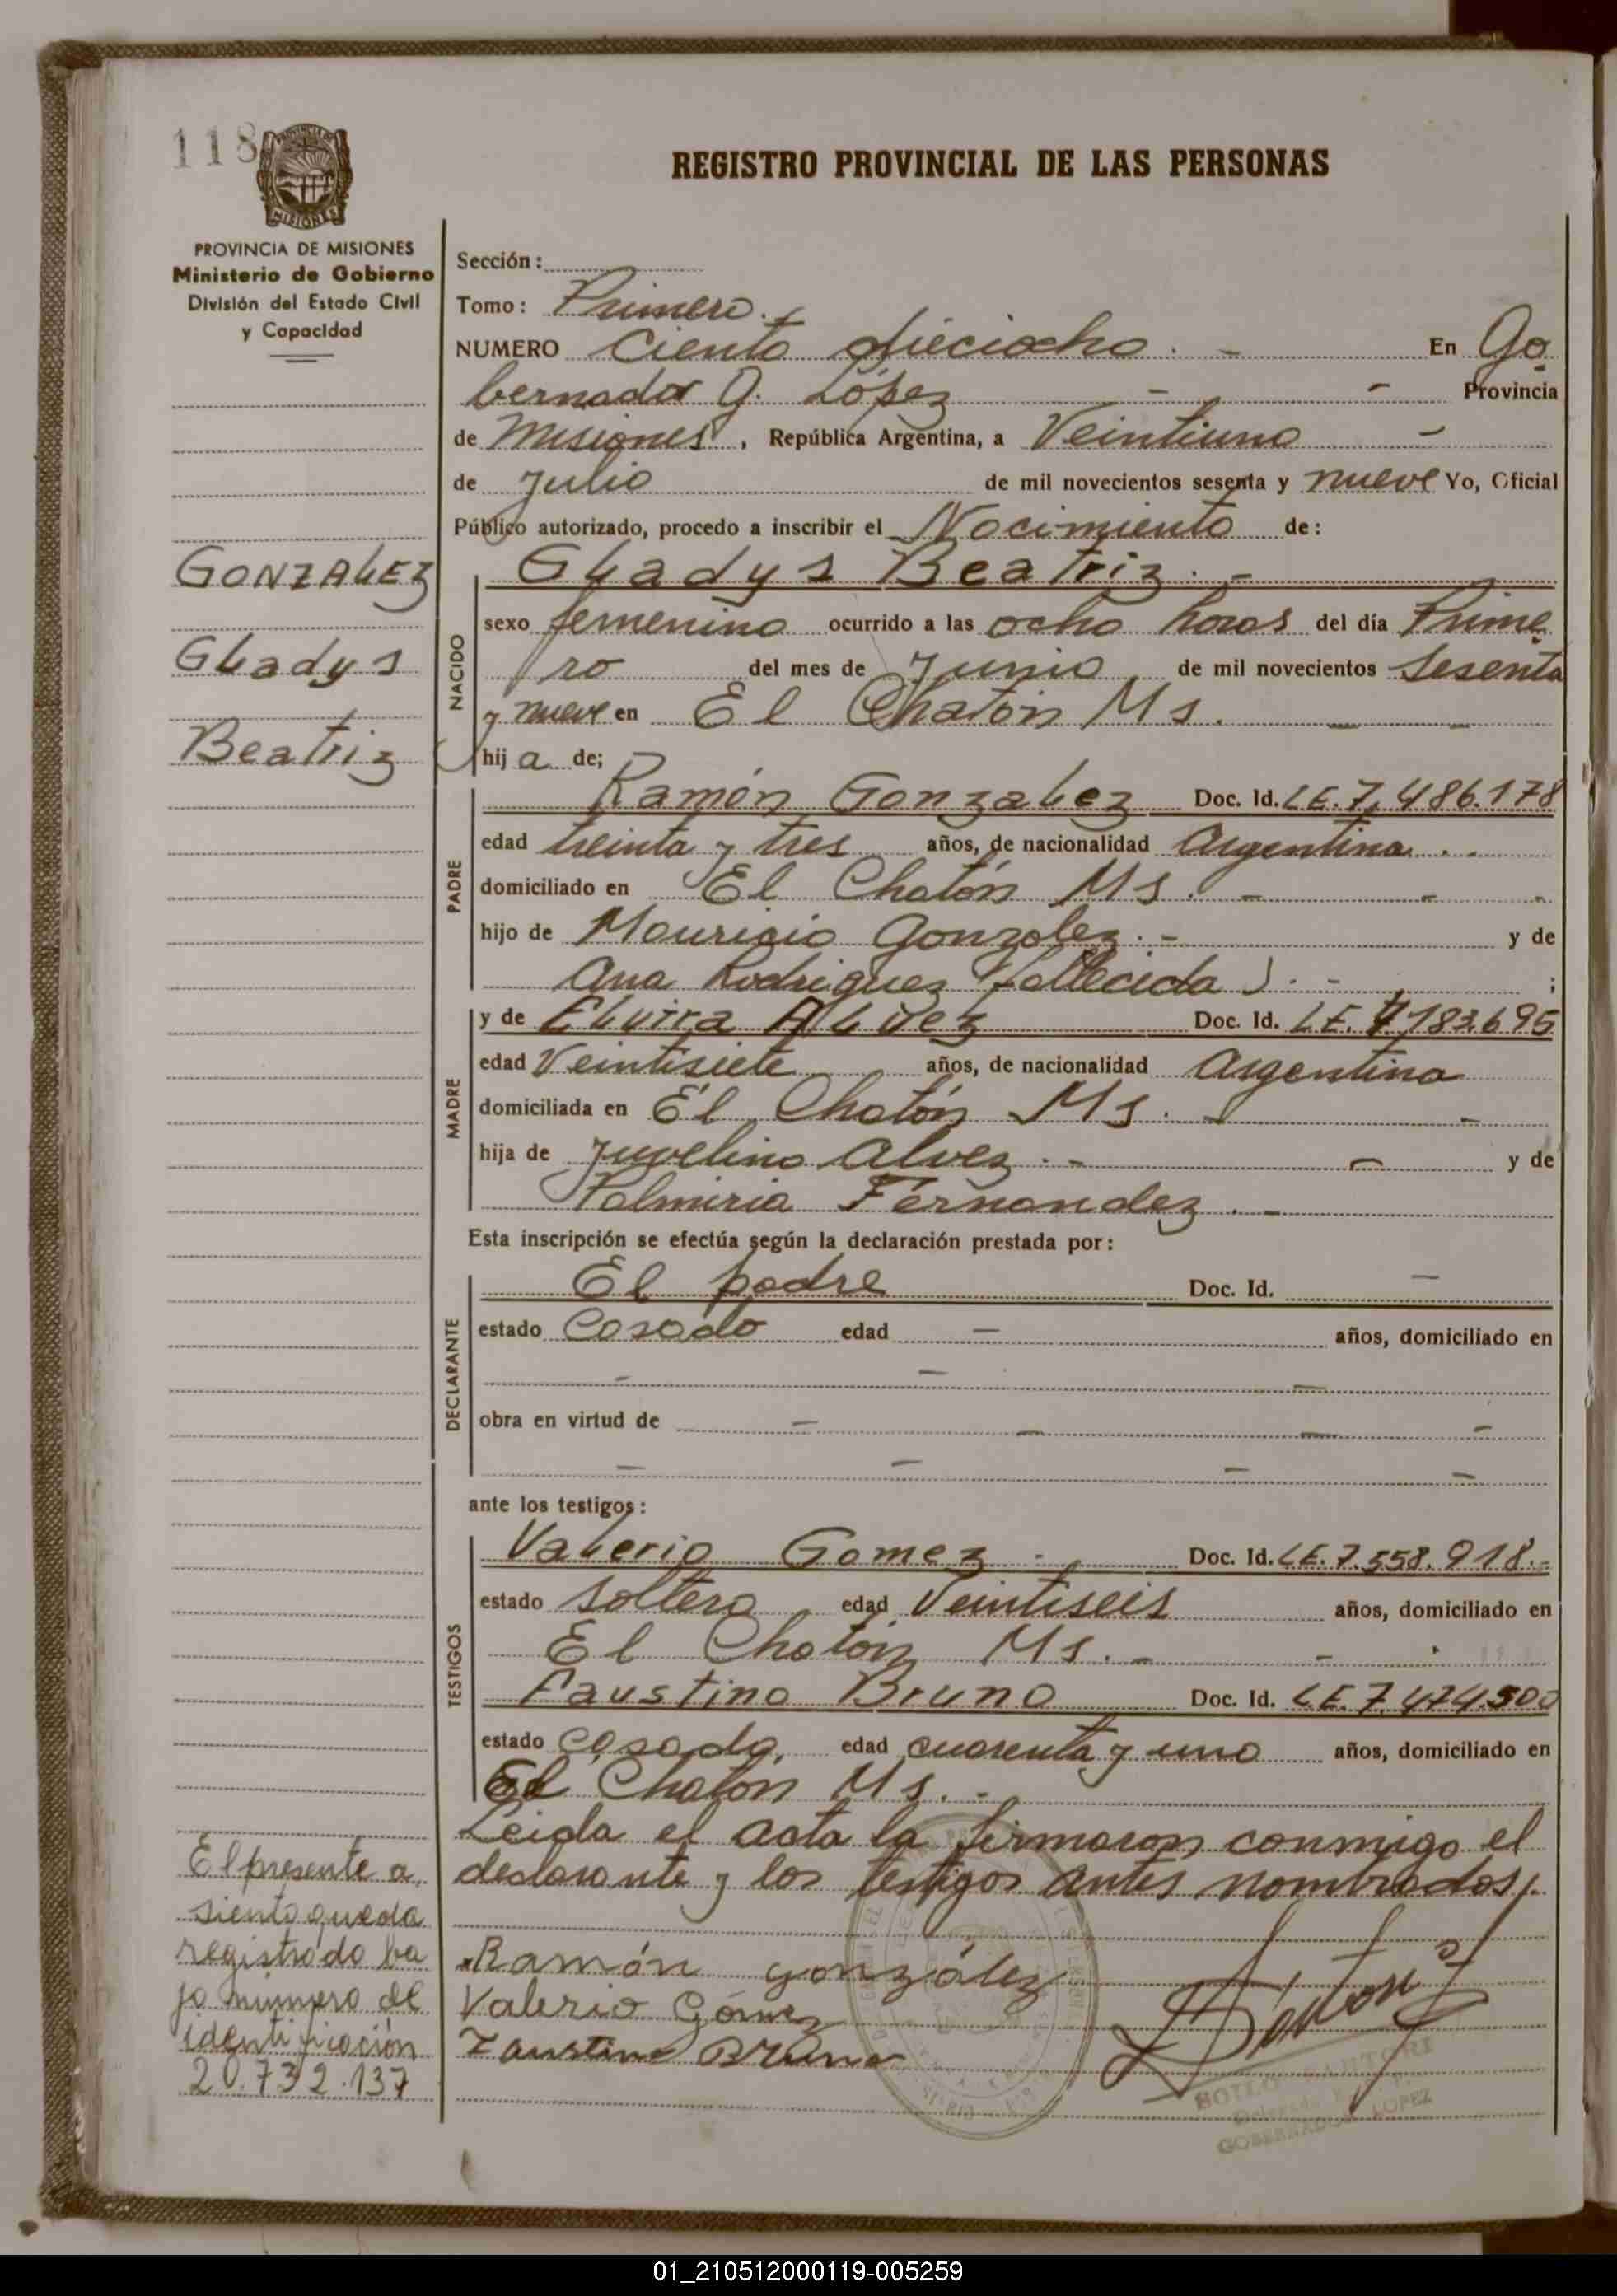 118
REGISTRO PROVINCIAL DE LAS PERSONAS
MISIONES
PROVINCIA DE MISIONES
Ministerio de Gobierno
División del Estado Civil
y Capacidad
GONZALEZ
Gladys
Beatriz
Sección:
Tomo: Primero.
NUMERO Ciento dieciocho. - En Go
bernador J. López - - Provincia
de Misiones, República Argentina, a Veintiuno -
de Julio de mil novecientos sesenta y nueve Yo, Oficial
Público autorizado, procedo a inscribir el Nacimiento de:
NACIDO
Gladys Beatriz. -
sexo femenino ocurrido a las ocho horas del día Prime
ro del mes de Junio de mil novecientos Sesenta
y nueve en El Chatón Ms. - -
hija de;
PADRE
Ramón Gonzalez Doc. Id. LE. 7.486.178
edad treinta y tres años, de nacionalidad Argentina. . -
domiciliado en El Chatón Ms. - - -
hijo de Mauricio Gonzalez. - y de
Ana Rodriguez (fallecida). - ;
MADRE
y de Elvira Alvez Doc. Id. LE. 183.695
edad Veintisiete años, de nacionalidad Argentina
domiciliada en El Chatón Ms. - -
hija de Juvelino Alvez. - - y de
Palmiria Fernandez. -
Esta inscripción se efectúa según la declaración prestada por:
DECLARANTE
El padre Doc. Id. -
estado Casado edad - años, domiciliado en
- - -
obra en virtud de - - - -
- - - -
ante los testigos:
TESTIGOS
Valerio Gomez - Doc. Id. LE. 7.558.918.-
estado Soltero edad Veintiseis años, domiciliado en
El Chatón Ms. - -
Faustino Bruno Doc. Id. LE. 7.474.500
estado casado, edad cuarenta y uno años, domiciliado en
El Chatón Ms. -
Leida el acta la firmaron conmigo el
declarante y los testigos antes nombrados/.
Ramón gonzález
Valerio Gómez
Faustino Bruno
SARTORI
GOBERNADOR LOPEZ
El presente a
siento queda
registrado ba
jo número de
identificación
20.732.137
01_210512000119-005259